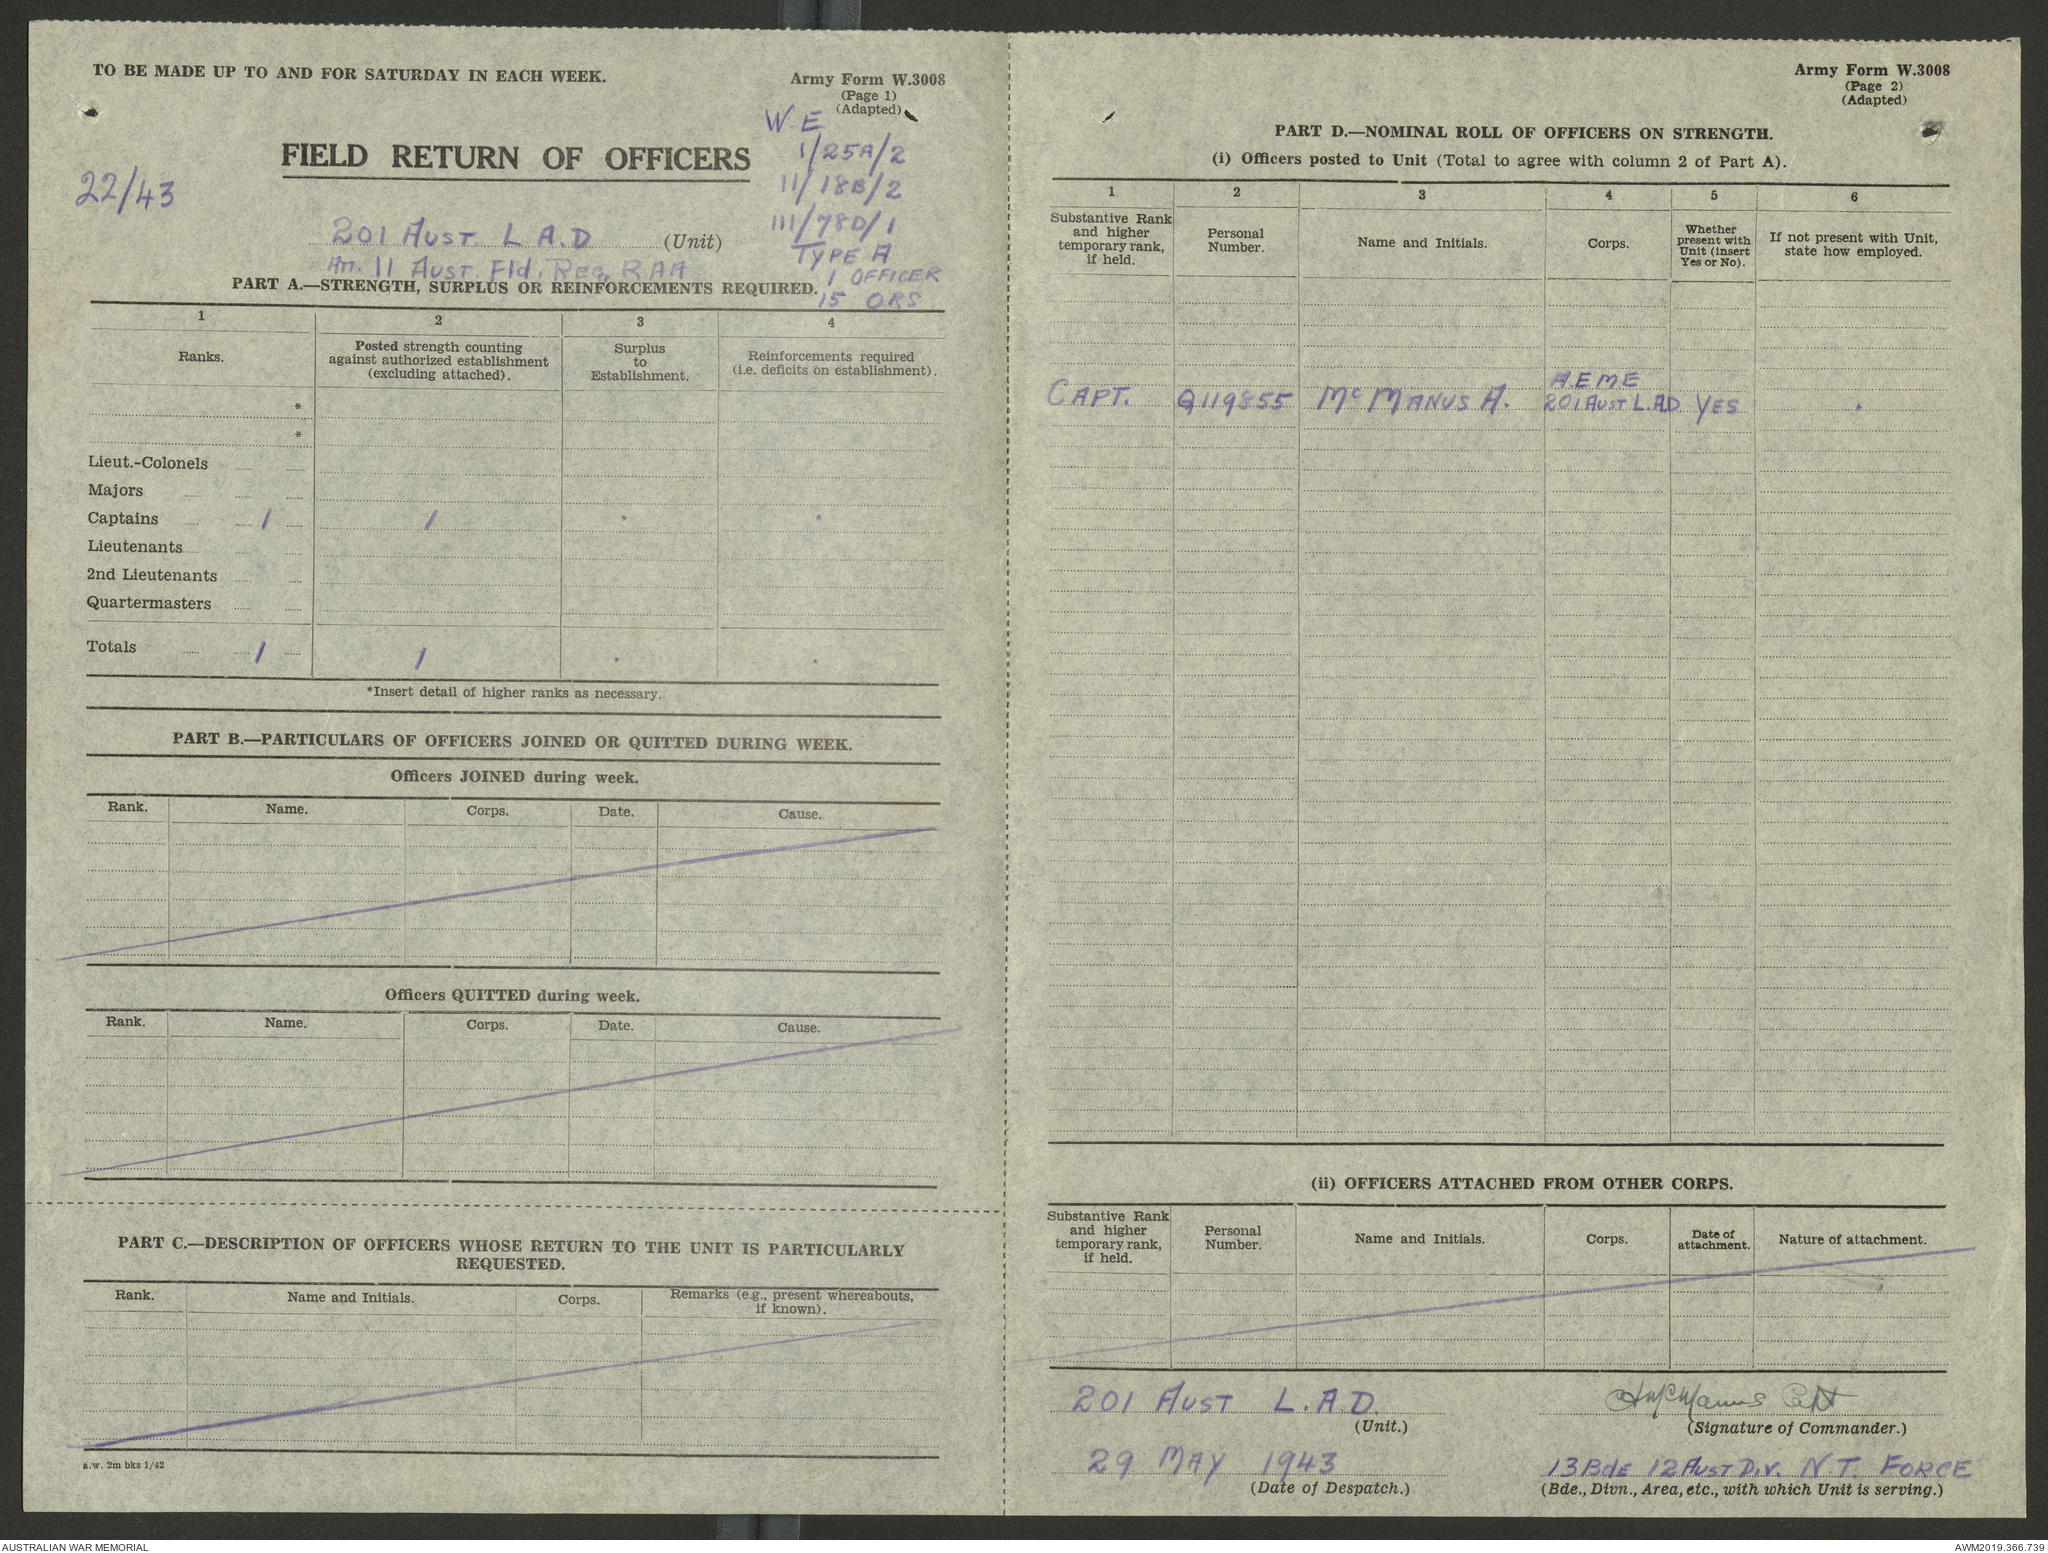 TO BE MADE UP TO AND FOR SATURDAY IN EACH WEEK.
Army Form W.3008
(Page 1)
(Adapted)
W E
1/25A/2
11/18B/2
111/78D/1
TYPE A
1 OFFICER
15 ORS
FIELD RETURN OF OFFICERS
22/43
201 AUST L A.D (Unit)
Att. 11 AUST. Fld. Reg. RAA
PART A.—STRENGTH, SURPLUS OR REINFORCEMENTS REQUIRED.
1 2 3 4
Ranks.
Posted strength counting
against authorized establishment
(excluding attached).
Surplus
to
Establishment.
Reinforcements required
(i.e. deficits on establishment).
*
*
Lieut.-Colonels
Majors
Captains 1 1 . .
Lieutenants
2nd Lieutenants
Quartermasters
Totals 1 1 . .
*Insert detail of higher ranks as necessary.
PART B.—PARTICULARS OF OFFICERS JOINED OR QUITTED DURING WEEK.
Officers JOINED during week.
Rank. Name. Corps. Date. Cause.
Officers QUITTED during week.
Rank. Name. Corps. Date. Cause.
PART C.—DESCRIPTION OF OFFICERS WHOSE RETURN TO THE UNIT IS PARTICULARLY
REQUESTED.
Rank. Name and Initials. Corps.
Remarks (e.g., present whereabouts,
if known).
a.w. 2m bks 1/42
Army Form W.3008
(Page 2)
(Adapted)
PART D.—NOMINAL ROLL OF OFFICERS ON STRENGTH.
(i) Officers posted to Unit (Total to agree with column 2 of Part A).
1 2 3 4 5 6
Substantive Rank
and higher
temporary rank,
if held.
Personal
Number.
Name and Initials.
Corps.
Whether
present with
Unit (insert
Yes or No).
If not present with Unit,
state how employed.
A E M E
CAPT. Q119855 McMANUS A. 201 AUST L.A.D YES .
(ii) OFFICERS ATTACHED FROM OTHER CORPS.
Substantive Rank
and higher
temporary rank,
if held.
Personal
Number.
Name and Initials.
Corps.
Date of
attachment.
Nature of attachment.
201 AUST L.A.D.
(Unit.)
A McManus Capt
(Signature of Commander.)
29 MAY 1943
(Date of Despatch.)
13 Bde 12 AUST DIV. N T. FORCE
(Bde., Divn., Area, etc., with which Unit is serving.)
AUSTRALIAN WAR MEMORIAL
AWM2019.366.739